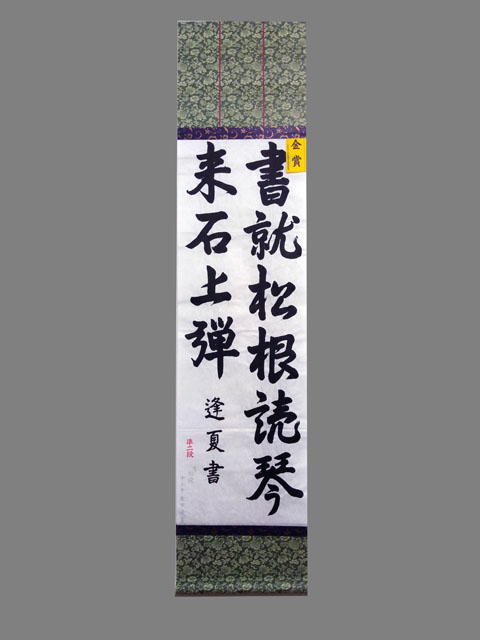 金賞
書就松根読琴
来石上弾
逢夏書
準二段